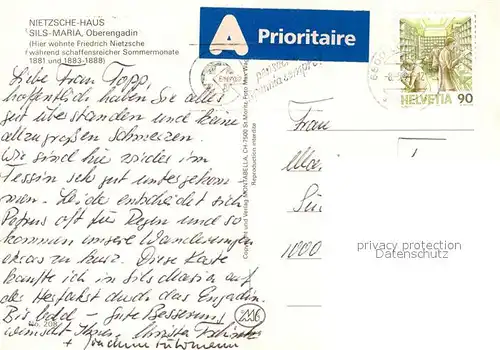 NIETZSCHE-HAUS
SILS-MARIA, Oberengadin
(Hier wohnte Friedrich Nietzsche
während schaffensreicher Sommermonate
1881 und 1883-1888)
A Prioritaire
HELVETIA 90
Liebe Frau Topp,
hoffentlich haben Sie alles
gut überstanden und keine
allzugroßen Schmerzen.
Wir sind hier wieder im
Tessin sehr gut untergekom
men. Leider entscheidet sich
Petrus oft für Regen und so
kommen unsere Wanderungen
etwas zu kurz. Diese Karte
kaufte ich in Sils Maria auf
der Herfahrt durch das Engadin.
Bis bald - gute Besserung
wünscht Ihnen
No. 208
Copyright und Verlag MONTABELLA, CH-7500 St. Moritz, Foto Max
Reproduction interdite
Frau
1000
privacy protection
Datenschutz